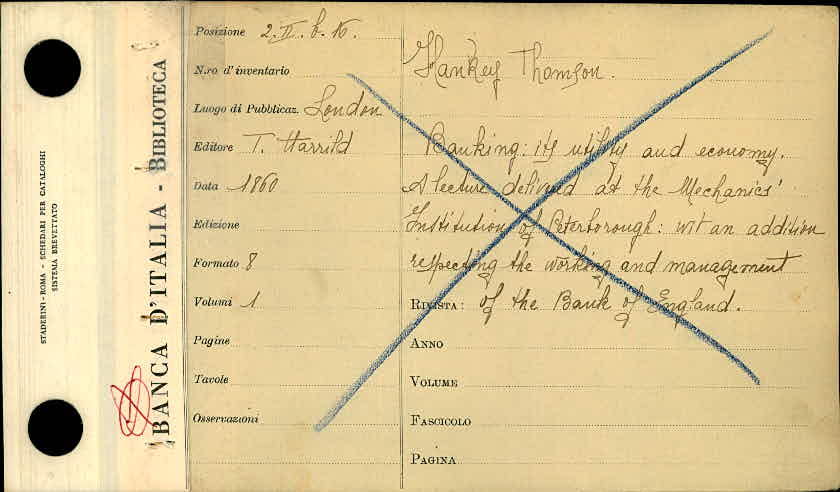 STADERINI-ROMA - SCHEDARI PER CATALOGHI
SISTEMA BREVETTATO
BANCA D'ITALIA - BIBLIOTECA
Posizione 2. II. b.
N.ro d'inventario
Luogo di Pubblicaz. London
Editore T. Harrild
Data 1860
Edizione
Formato 8
Volumi 1
Pagine
Tavole
Osservazioni
Hankey Thomson.
Banking: its utility and economy.
A lecture delivered at the Mechanics'
Institution of Peterborough: wit an addition
respecting the working and management
RIVISTA: of the Bank of England.
ANNO
VOLUME
FASCICOLO
PAGINA